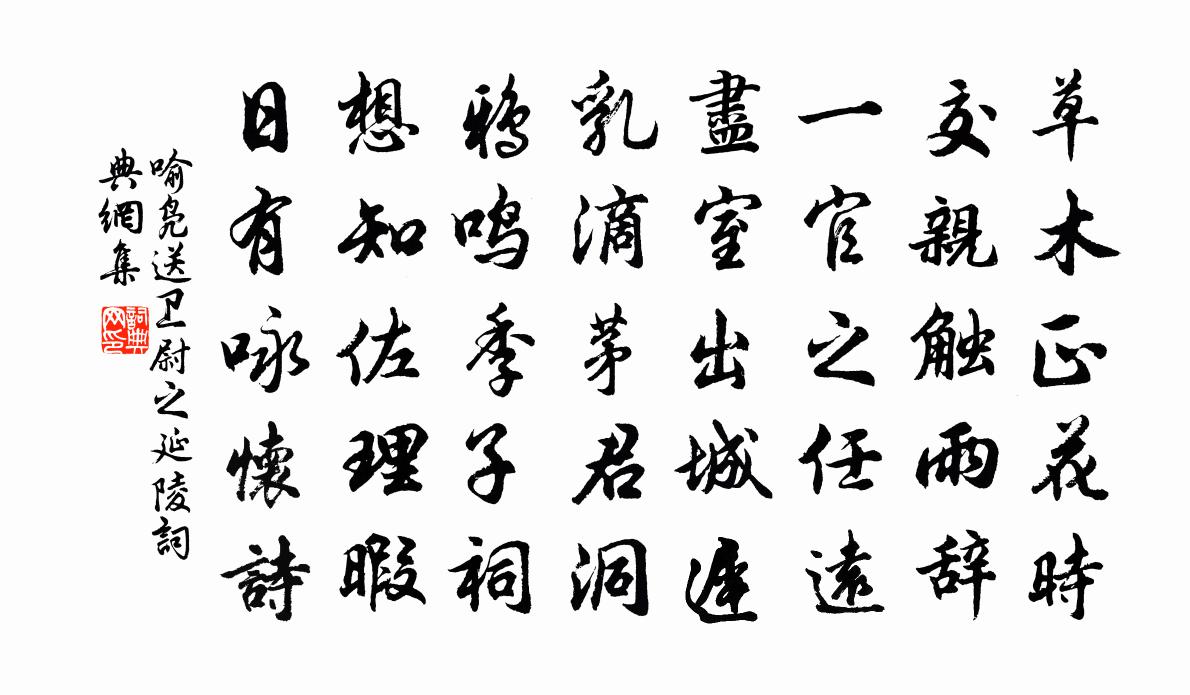 草木正花時
交親触雨辞
一官之任遠
盡室出城遲
乳滴茅君洞
鴉鳴季子祠
想知佐理暇
日有咏懷詩
喻凫送卫尉之延陵詞
典網集
詞典
网印